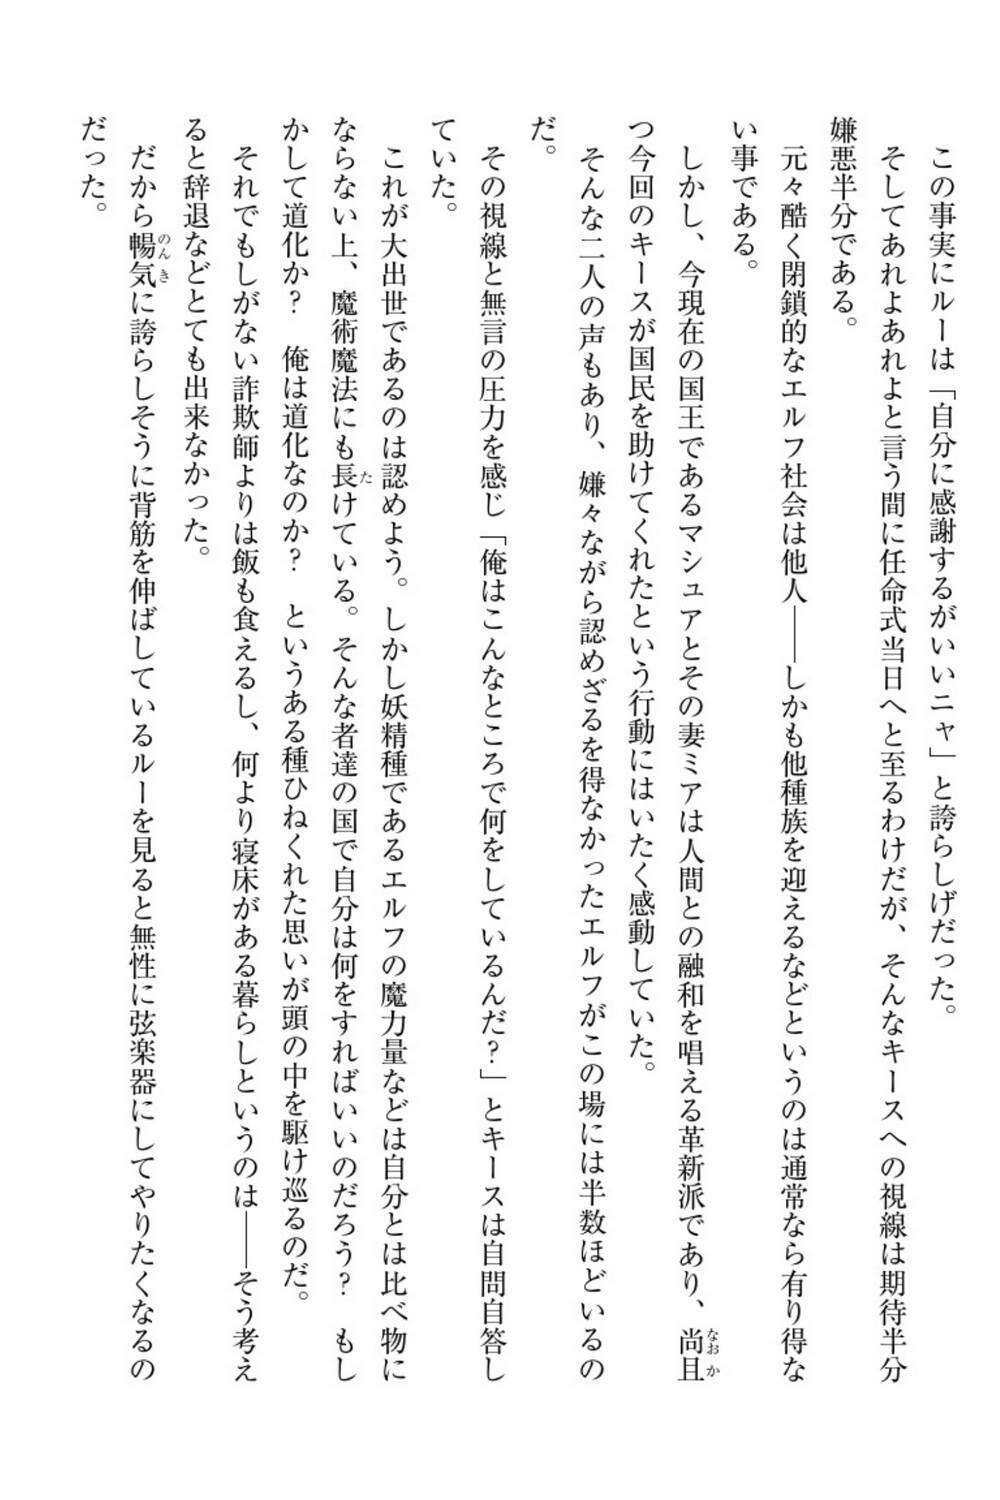 この事実にルーは「自分に感謝するがいいニャ」と誇らしげだった。
そしてあれよあれよと言う間に任命式当日へと至るわけだが、そんなキースへの視線は期待半分
嫌悪半分である。
元々酷く閉鎖的なエルフ社会は他人――しかも他種族を迎えるなどというのは通常なら有り得な
い事である。
しかし、今現在の国王であるマシュアとその妻ミアは人間との融和を唱える革新派であり、尚且
つ今回のキースが国民を助けてくれたという行動にはいたく感動していた。
そんな二人の声もあり、嫌々ながら認めざるを得なかったエルフがこの場には半数ほどいるの
だ。
その視線と無言の圧力を感じ「俺はこんなところで何をしているんだ?」とキースは自問自答し
ていた。
これが大出世であるのは認めよう。しかし妖精種であるエルフの魔力量などは自分とは比べ物に
ならない上、魔術魔法にも長けている。そんな者達の国で自分は何をすればいいのだろう? もし
かして道化か? 俺は道化なのか? というある種ひねくれた思いが頭の中を駆け巡るのだ。
それでもしがない詐欺師よりは飯も食えるし、何より寝床がある暮らしというのは――そう考え
ると辞退などとても出来なかった。
だから暢気に誇らしそうに背筋を伸ばしているルーを見ると無性に弦楽器にしてやりたくなるの
だった。
なおか
た
のんき